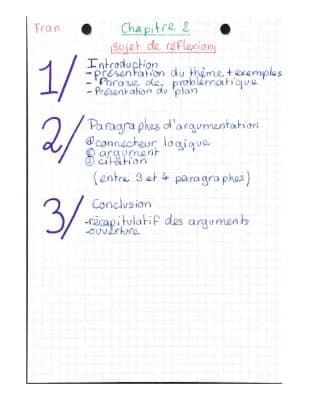 Fran
Chapitre 2
Sujet de réflexion
1/
Introduction
-présentation du thème + exemples
- Phrase de problématique
- Présentation du plan
2/
Paragraphes d'argumentation
① connecteur logique
② argument
③ citation
(entre 3 et 4 paragraphes)
3/
Conclusion
-récapitulatif des arguments
-ouverture